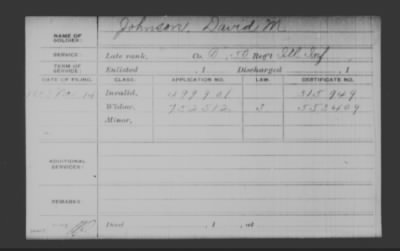 Johnson, David M.
NAME OF SOLDIER:
SERVICE: Late rank, Co. D, 50 Reg't Ill Inf.
TERM OF SERVICE: Enlisted , 1 Discharged , 1
DATE OF FILING. CLASS. APPLICATION NO. LAW. CERTIFICATE NO.
Invalid, 499901 315949
Widow, 752512 3 553409
Minor,
ADDITIONAL SERVICES:
REMARKS:
Died , 1 , at